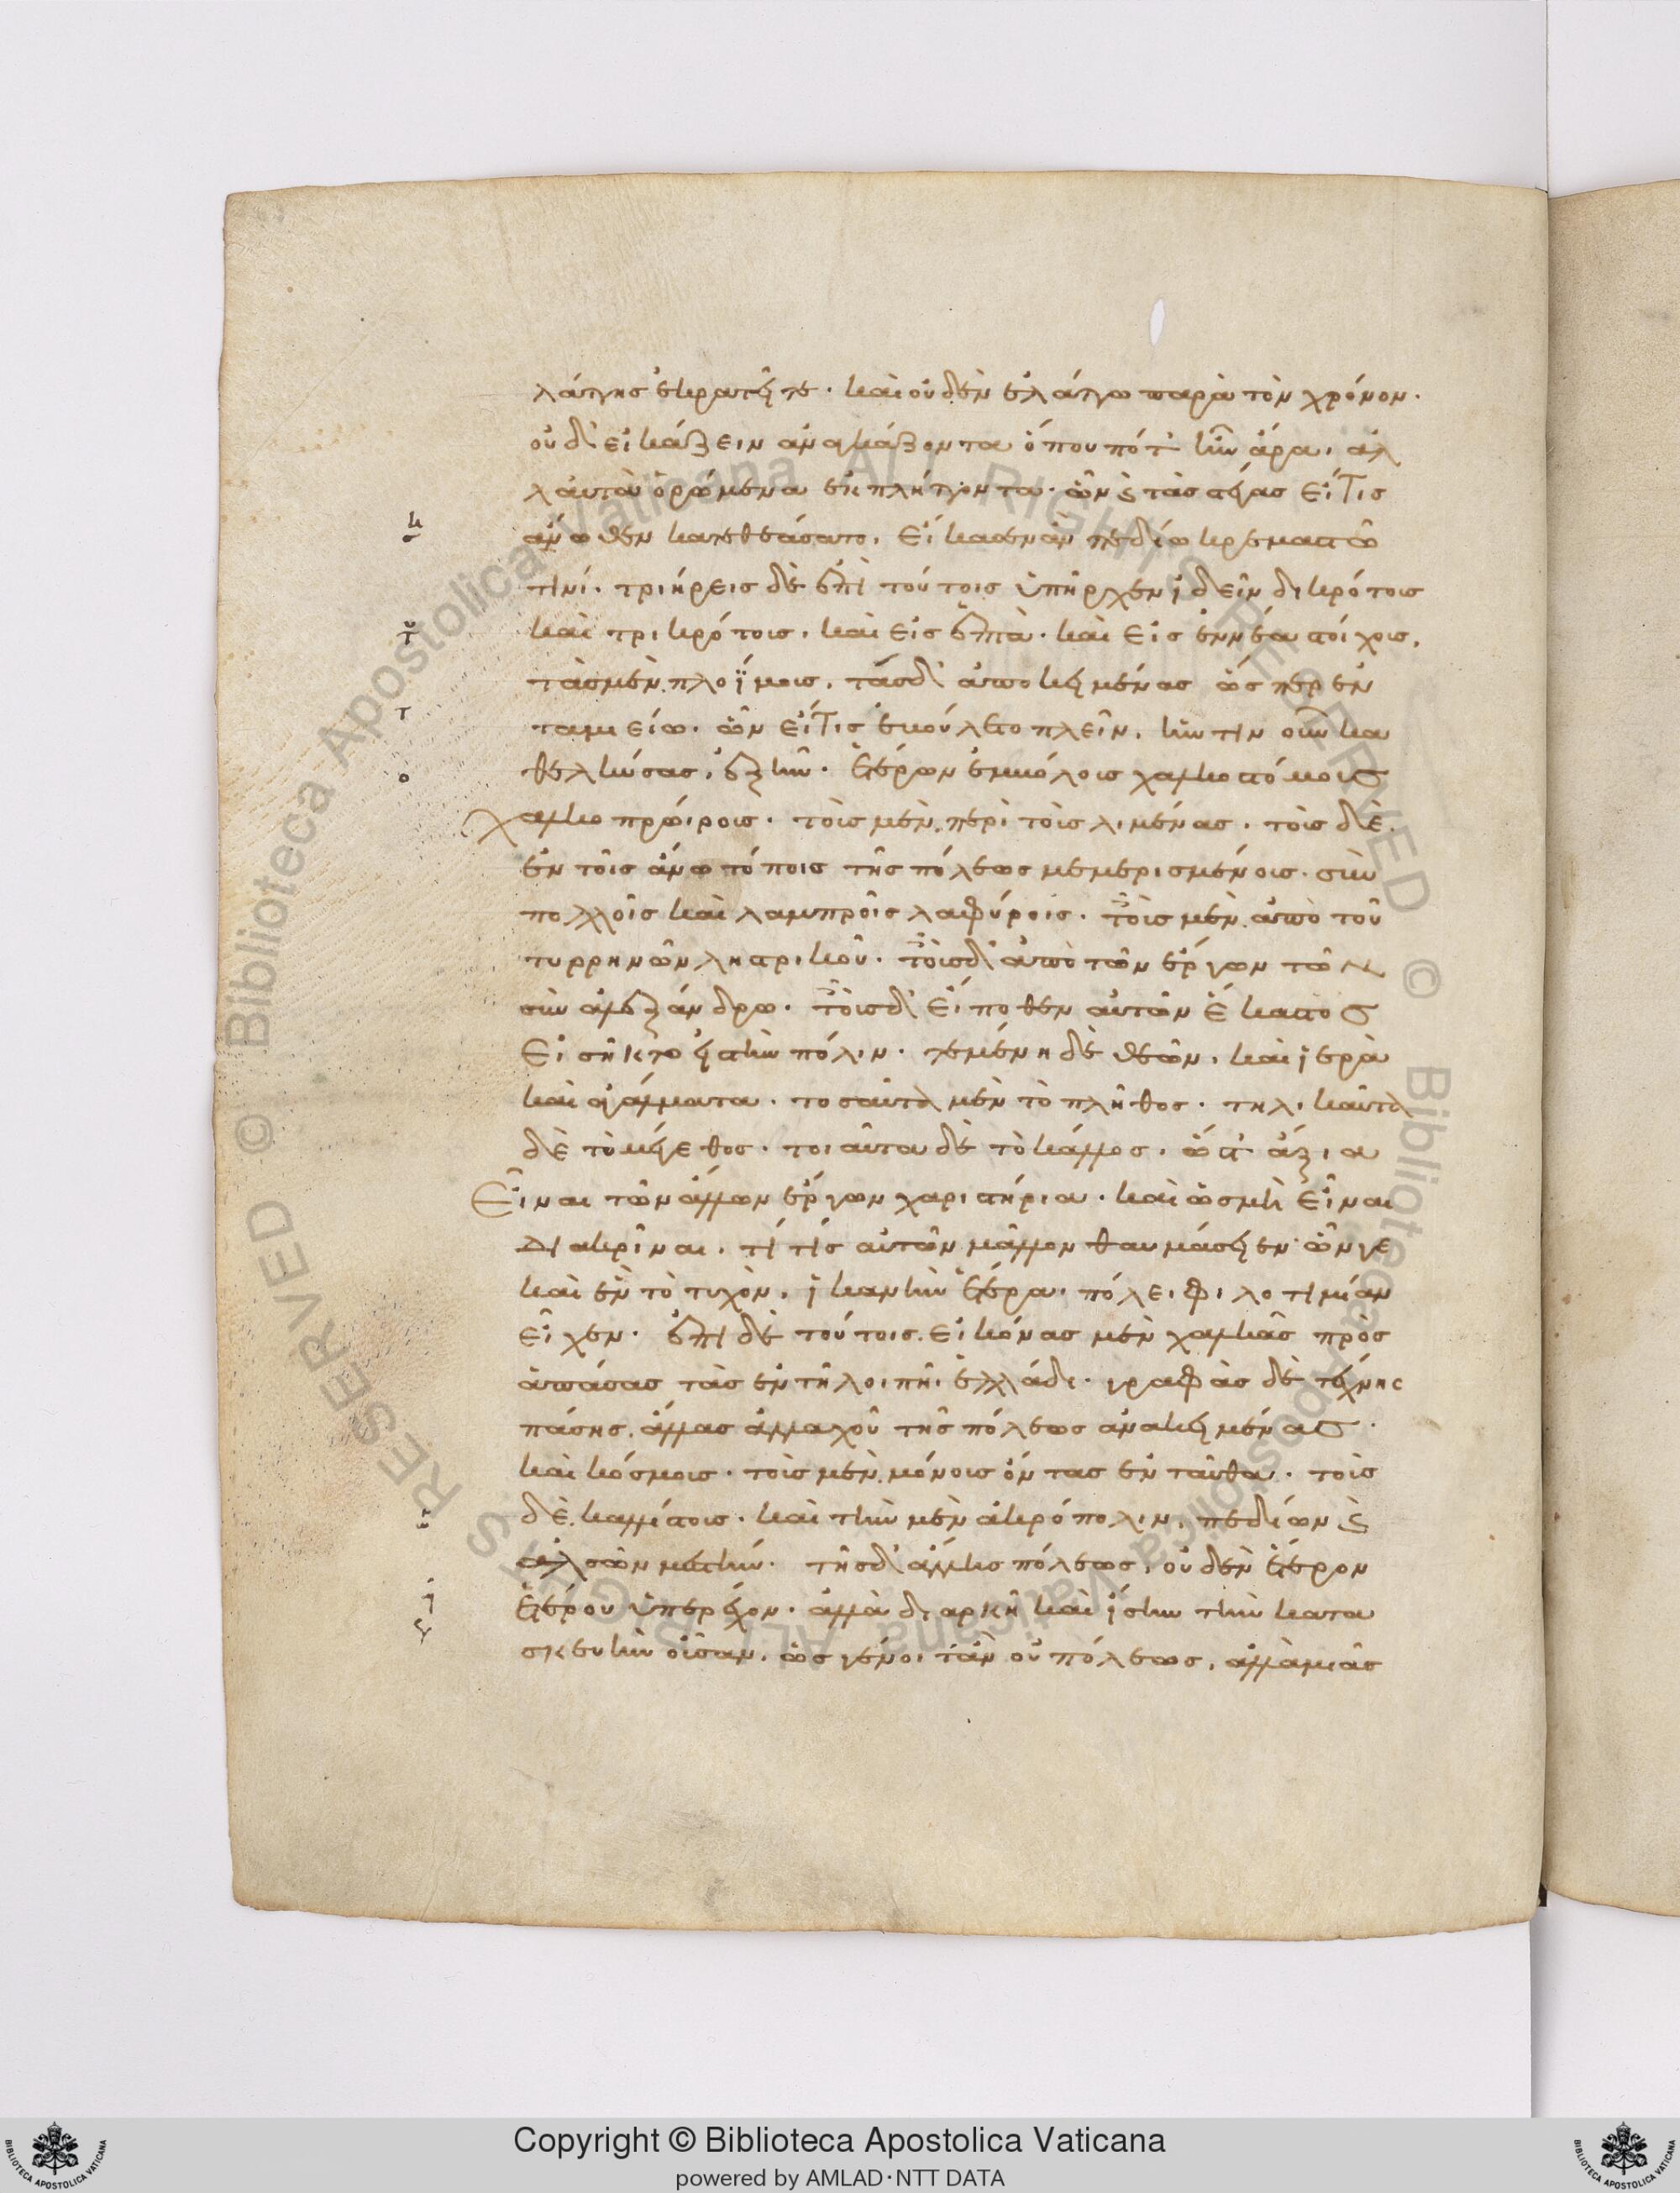 λάττης ἐκρατεῖτε· καὶ οὐδὲν ἐλάττω παρὰ τὸν χρόνον·
οὐδ' εἰκάζειν ἀναγκάζοντα ὁποῦ ποτ' ἦν ἄρα, ἀλ
λ' αὐτὰ ὁρώμενα ἐκπλήττοντα· ὧν καὶ τὰς στέγας εἴ τις
ἄνωθεν κατεθεάσατο, εἴκασεν ἂν πεδίω κρεμαστῶ
τινί· τριήρεις δὲ ἐπὶ τούτοις ὑπῆρχεν ἰδεῖν δικρότους
καὶ τρικρότους, καὶ εἰς ἑπτὰ· καὶ εἰς ἐννέα στοίχους,
τὰς μὲν πλοΐμους, τὰς δ' ἀποκειμένας ὥσπερ ἐν
ταμιείω· ὧν εἴ τις ἐβούλετο πλεῖν, ἥντιν οὖν κα
θελκύσας, ἐξῆν· ἑτέρων ἐμβόλους χαλκοστόμους
χαλκοπρώρους· τοὺς μὲν περὶ τοὺς λιμένας· τοὺς δὲ
ἐν τοῖς ἄνω τόποις τῆς πόλεως μεμερισμένους· σὺν
πολλοῖς καὶ λαμπροῖς λαφύροις· τοῖς μὲν ἀπὸ τοῦ
τυρρηνῶν ληστρικοῦ· τοῖς δ' ἀπὸ τῶν ἔργων τῶν
σὺν ἀλεξάνδρω· τοῖς δ' εἴποθεν αὐτῶν ἕκαστος
εἰσῆκτο εἰς τὴν πόλιν· τεμένη δὲ θεῶν, καὶ ἱερὰ
καὶ ἀγάλματα· τοσαῦτα μὲν τὸ πλῆθος· τηλικαῦτα
δὲ τὸ μέγεθος· τοιαῦτα δὲ τὸ κάλλος, ὥστ' ἄξια
εἶναι τῶν ἄλλων ἔργων χαριστήρια· καὶ ὡς μὴ εἶναι
διακρῖναι, τί τίς αὐτῶν μᾶλλον θαυμάσειεν· ὧν γε
καὶ ἓν τὸ τυχὸν, ἱκανὴν ἑτέρα πόλει φιλοτιμίαν
εἶχεν· ἐπὶ δὲ τούτοις εἰκόνας μὲν χαλκᾶς πρὸς
ἁπάσας τὰς ἐν τῆ λοιπῆ ἑλλάδι· γραφὰς δὲ τέχνης
πάσης, ἄλλας ἀλλαχοῦ τῆς πόλεως ἀνακειμένας·
καὶ κόσμους· τοὺς μὲν μόνους ὄντας ἐνταῦθα· τοὺς
δὲ καλλίστους· καὶ τὴν μὲν ἀκρόπολιν, πεδίων καὶ
ἀλσῶν μεστήν· τῆς δ' ἄλλης πόλεως, οὐδὲν ἕτερον
ἑτέρου ὑπερέχον· ἀλλὰ διαρκῆ καὶ ἴσην τὴν κατα
σκευὴν οὖσαν, ὡς γένοιτ' ἂν οὐ πόλεως, ἀλλὰ μιᾶς